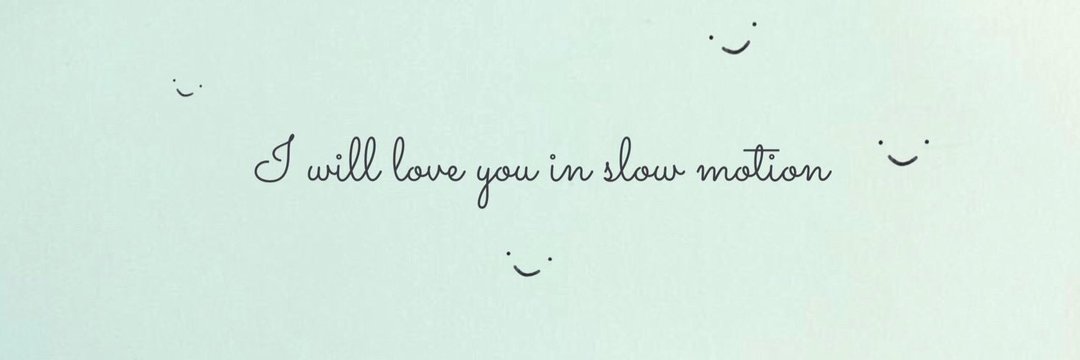 I will love you in slow motion